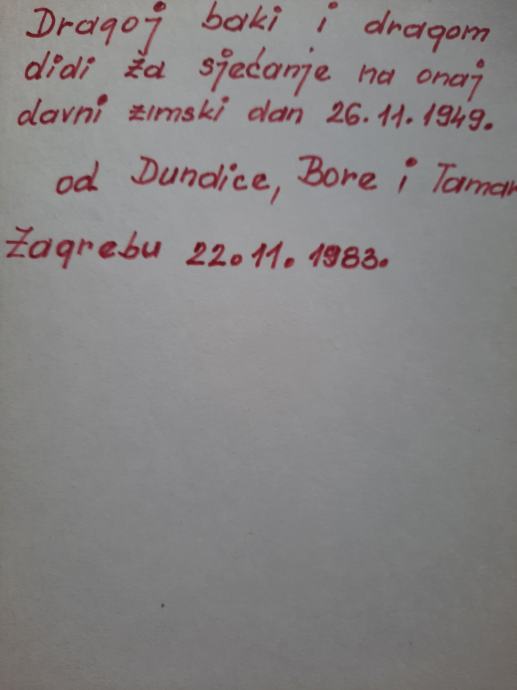 Dragoj baki i dragom
didi za sjećanje na onaj
davni zimski dan 26.11.1949.
od Dundice, Bore i Tamar
Zagrebu 22.11.1983.